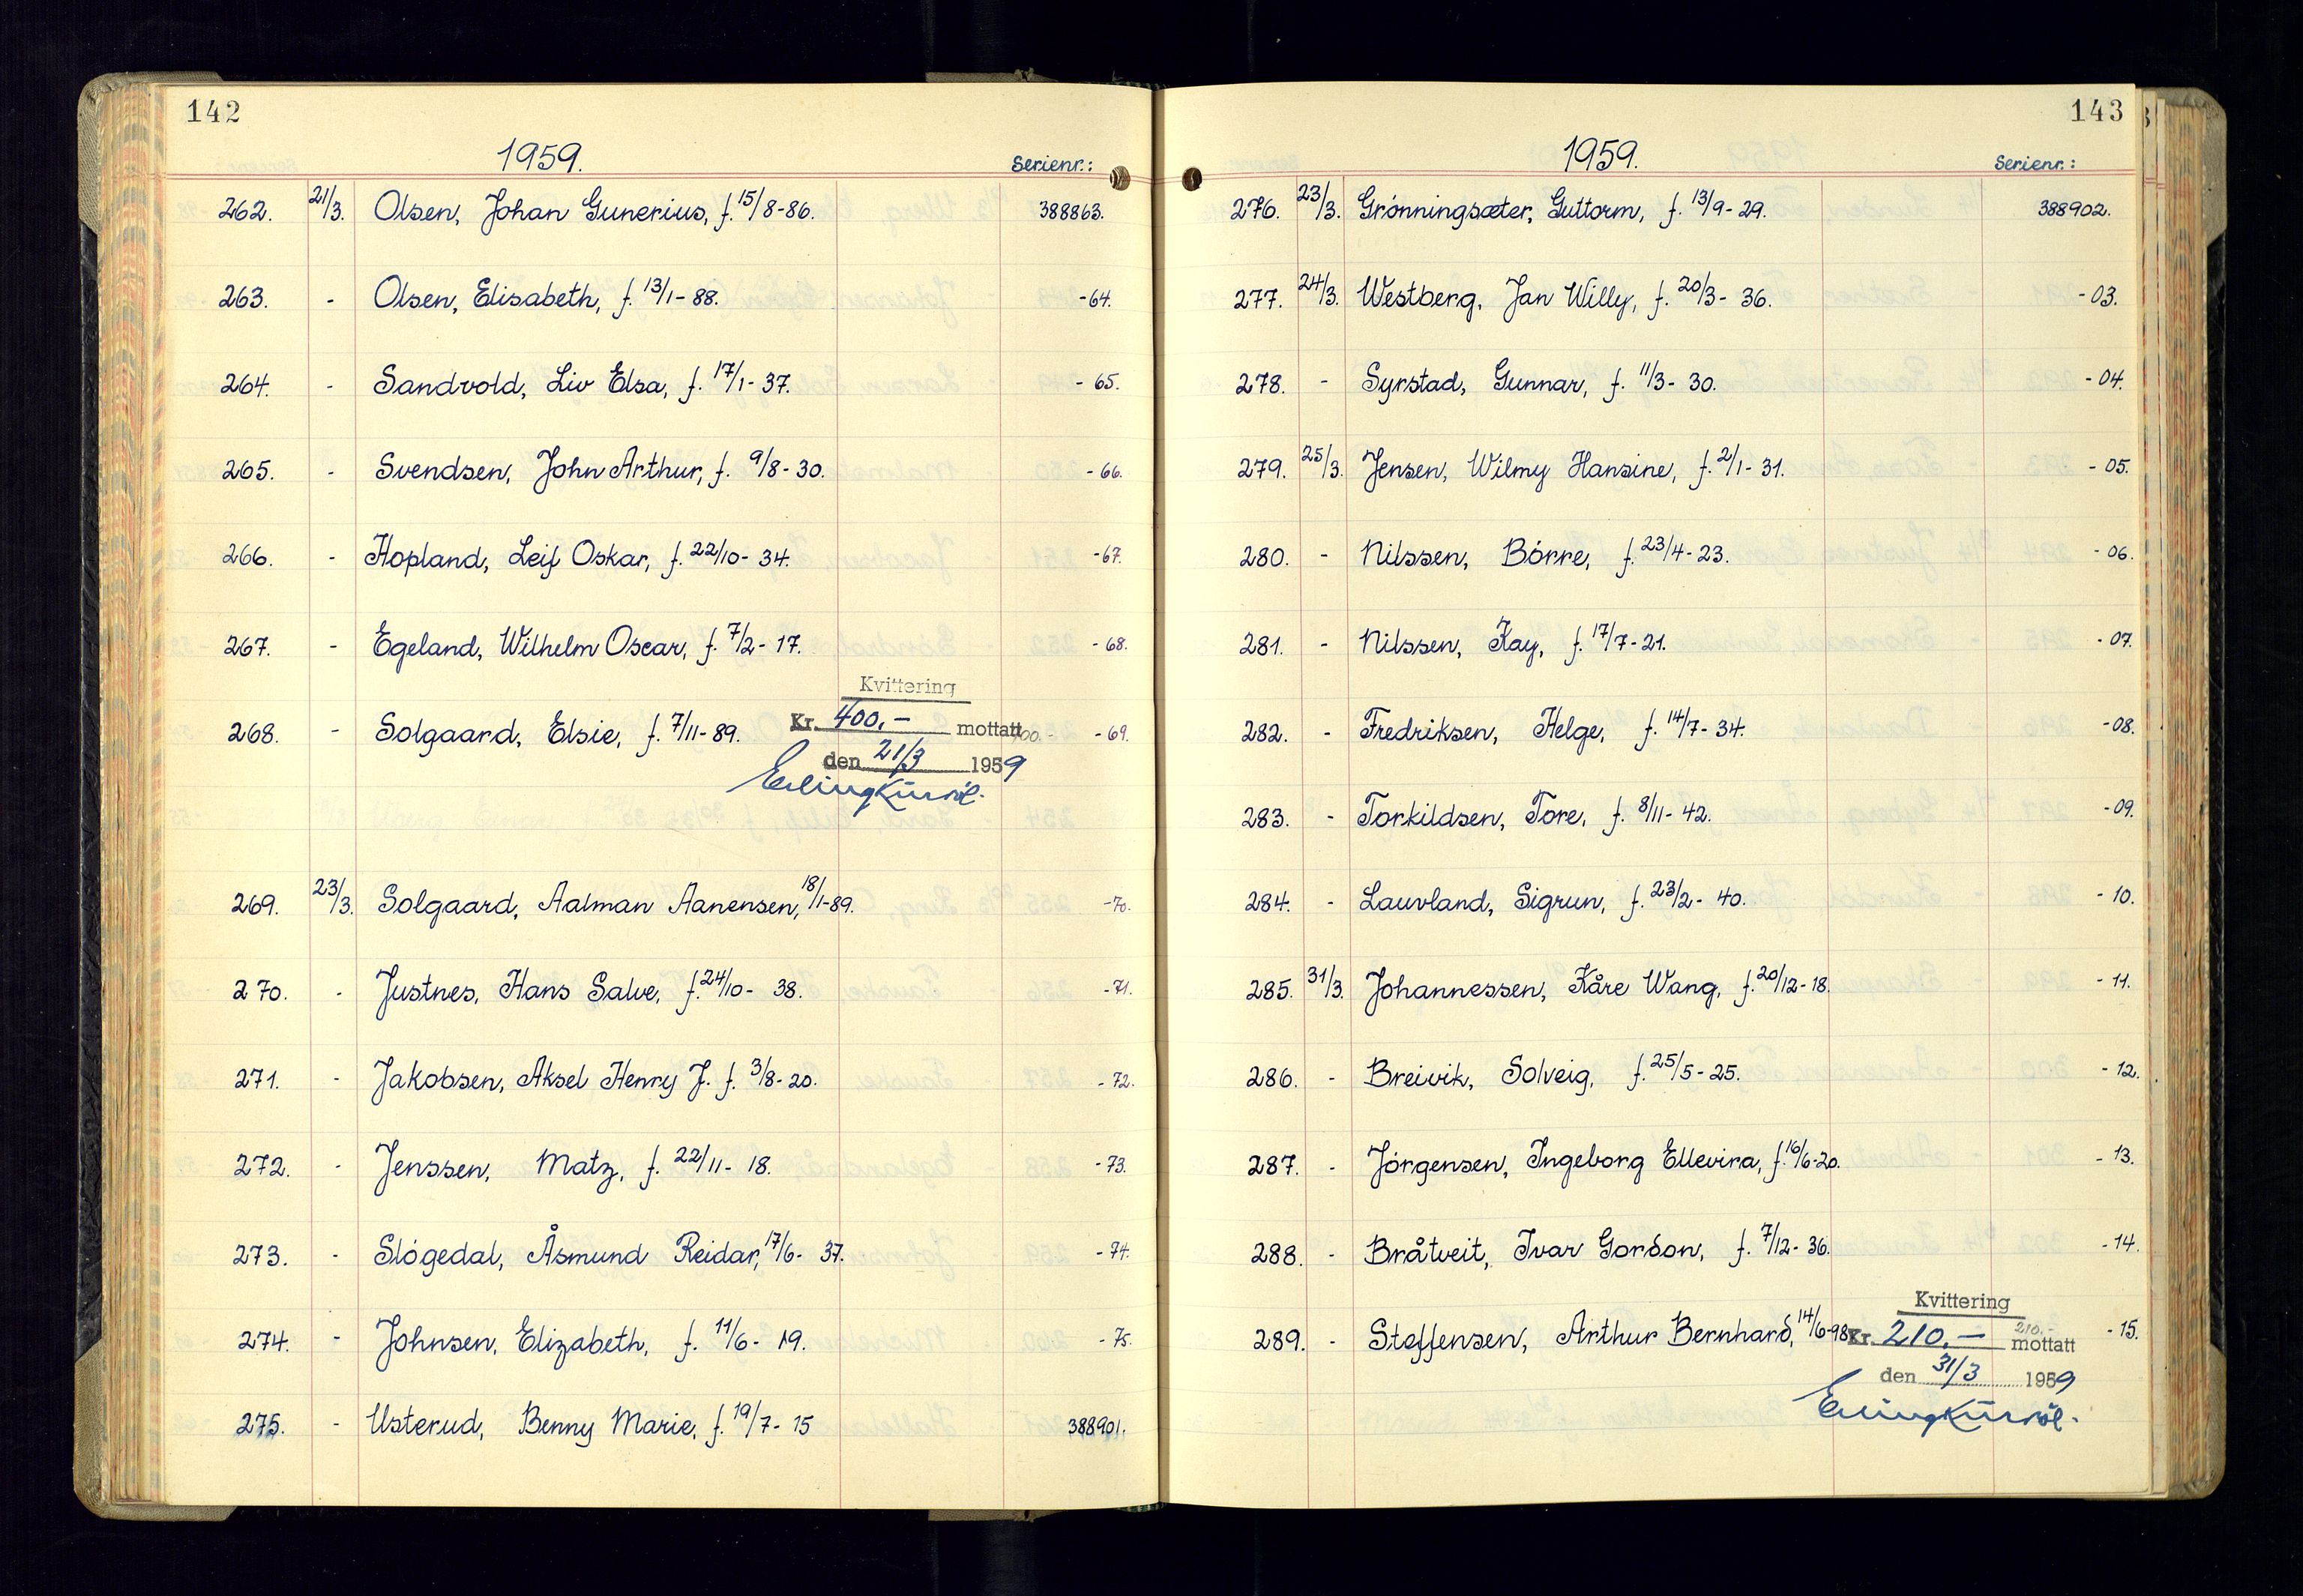 142
1959.
Serienr.:
262. 21/3. Olsen, Johan Gunerius, f. 15/8-86. 388863.
263. - Olsen, Elisabeth, f. 13/1-88. -64.
264. - Sandvold, Liv Elsa, f. 17/1-37. -65.
265. - Svendsen, John Arthur, f. 9/8-30. -66.
266. - Hopland, Leif Oskar, f. 22/10-34. -67.
267. - Egeland, Wilhelm Oscar, f. 7/2-17. -68.
Kvittering
268. - Solgaard, Elsie, f. 7/11-89. Kr. 400.- mottatt 400.- -69.
den 21/3 1959
269. 23/3. Solgaard, Aalman Aanensen, 18/1-89. -70.
270. - Justnes, Hans Salve, f. 24/10-38. -71.
271. - Jakobsen, Aksel Henry J. f. 3/8-20. -72.
272. - Jenssen, Matz, f. 22/11-18. -73.
273. - Slógedal, Åsmund Reidar, 17/6-37. -74.
274. - Johnsen, Elizabeth, f. 11/6-19. -75.
275. - Usterud, Benny Marie, f. 19/7-15 388901.
143
1959.
Serienr.:
276. 23/3. Grónningsæter, Guttorm, f. 13/9-29. 388902.
277. 24/3. Westberg, Jan Willy, f. 20/3-36. -03.
278. - Syrstad, Gunnar, f. 11/3-30. -04.
279. 25/3. Jensen, Wilmy Hansine, f. 2/1-31. -05.
280. - Nilssen, Bórre, f. 23/4-23. -06.
281. - Nilssen, Kay, f. 17/7-21. -07.
282. - Fredriksen, Helge, f. 14/7-34. -08.
283. - Torkildsen, Tore, f. 8/11-42. -09.
284. - Lauvland, Sigrun, f. 23/2-40. -10.
285. 31/3. Johannessen, Kåre Wang, f. 20/12-18. -11.
286. - Breivik, Solveig, f. 25/5-25. -12.
287. - Jórgensen, Ingeborg Ellevira, f. 16/6-20. -13.
288. - Bråtveit, Ivar Gordon, f. 7/12-36. -14.
Kvittering
289. - Steffensen, Arthur Bernhard, 14/6-98 Kr. 210.- 210.- mottatt -15.
den 31/3 1959